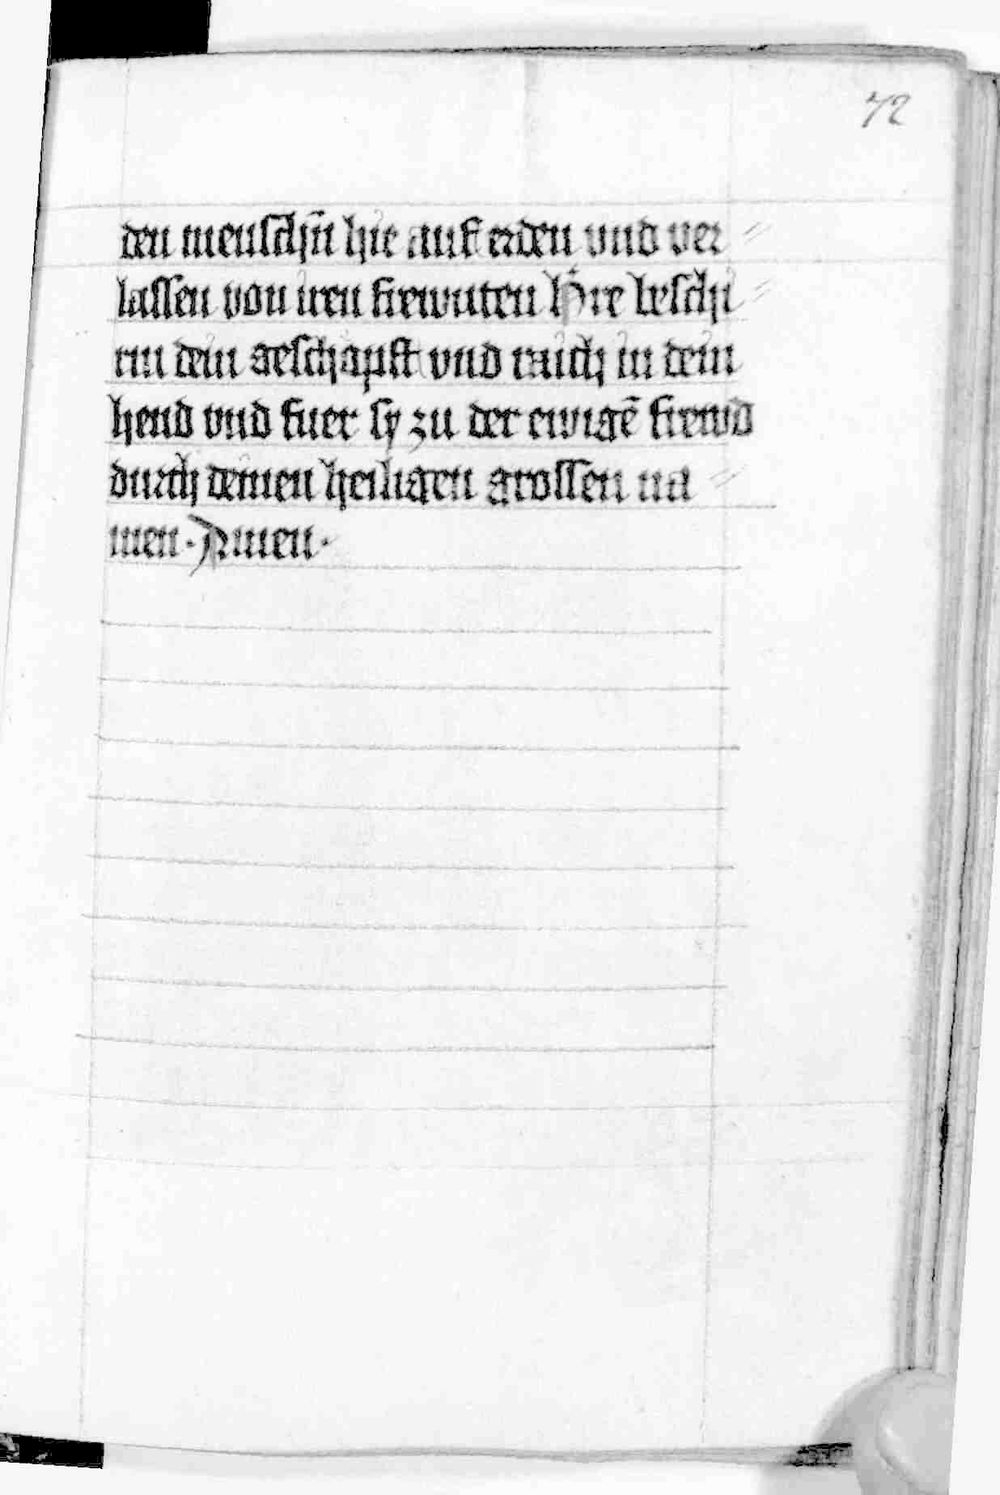 72
den menschn̄ hie auf erden vnd ver
lassen von iren frewnten Hr̄e beschi
rm dein geschäpft vnd raich in dein
hend vnd fuer sy zu der ewigē frewd
durch deinen heiligen grossen na
men · Amen ·